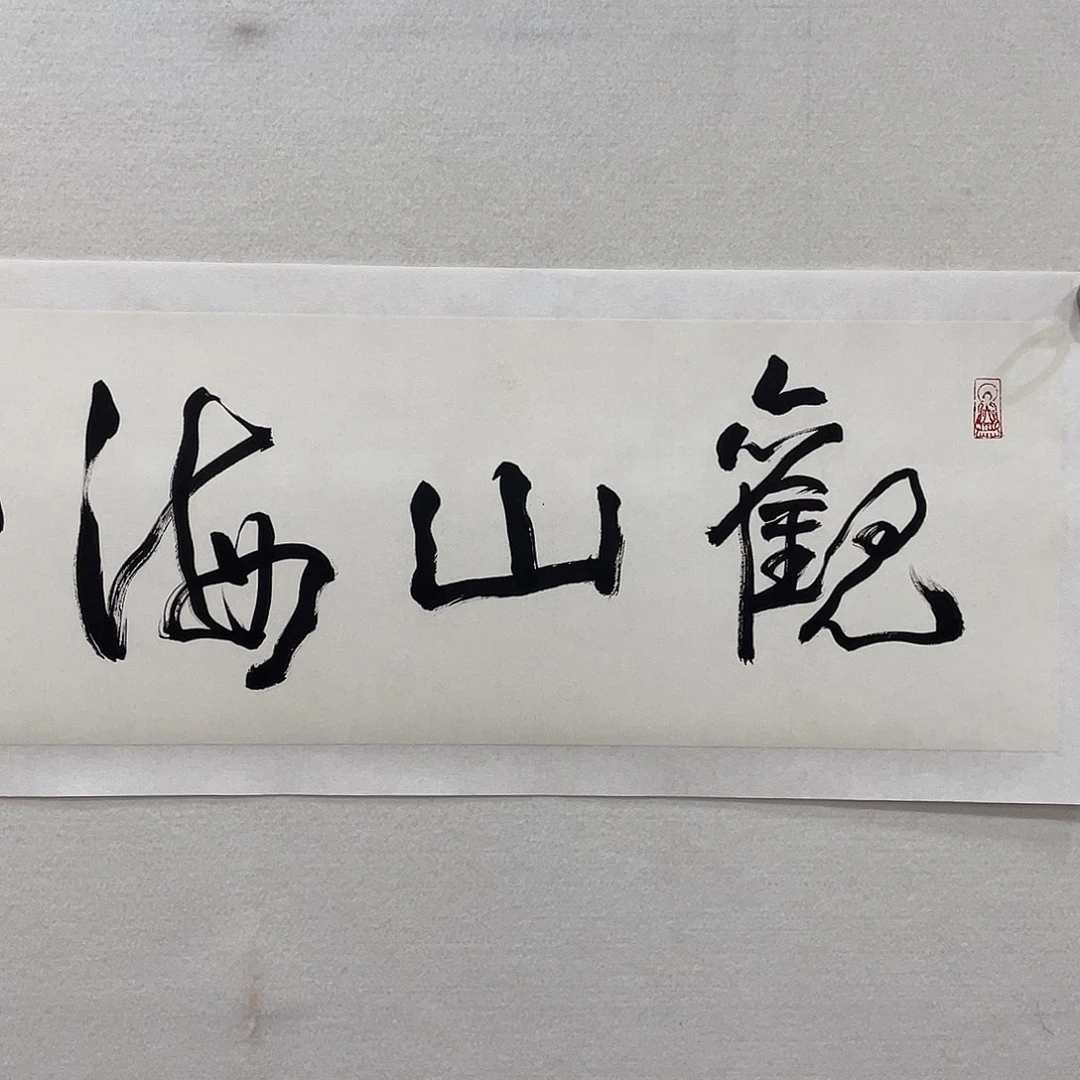 觀山海